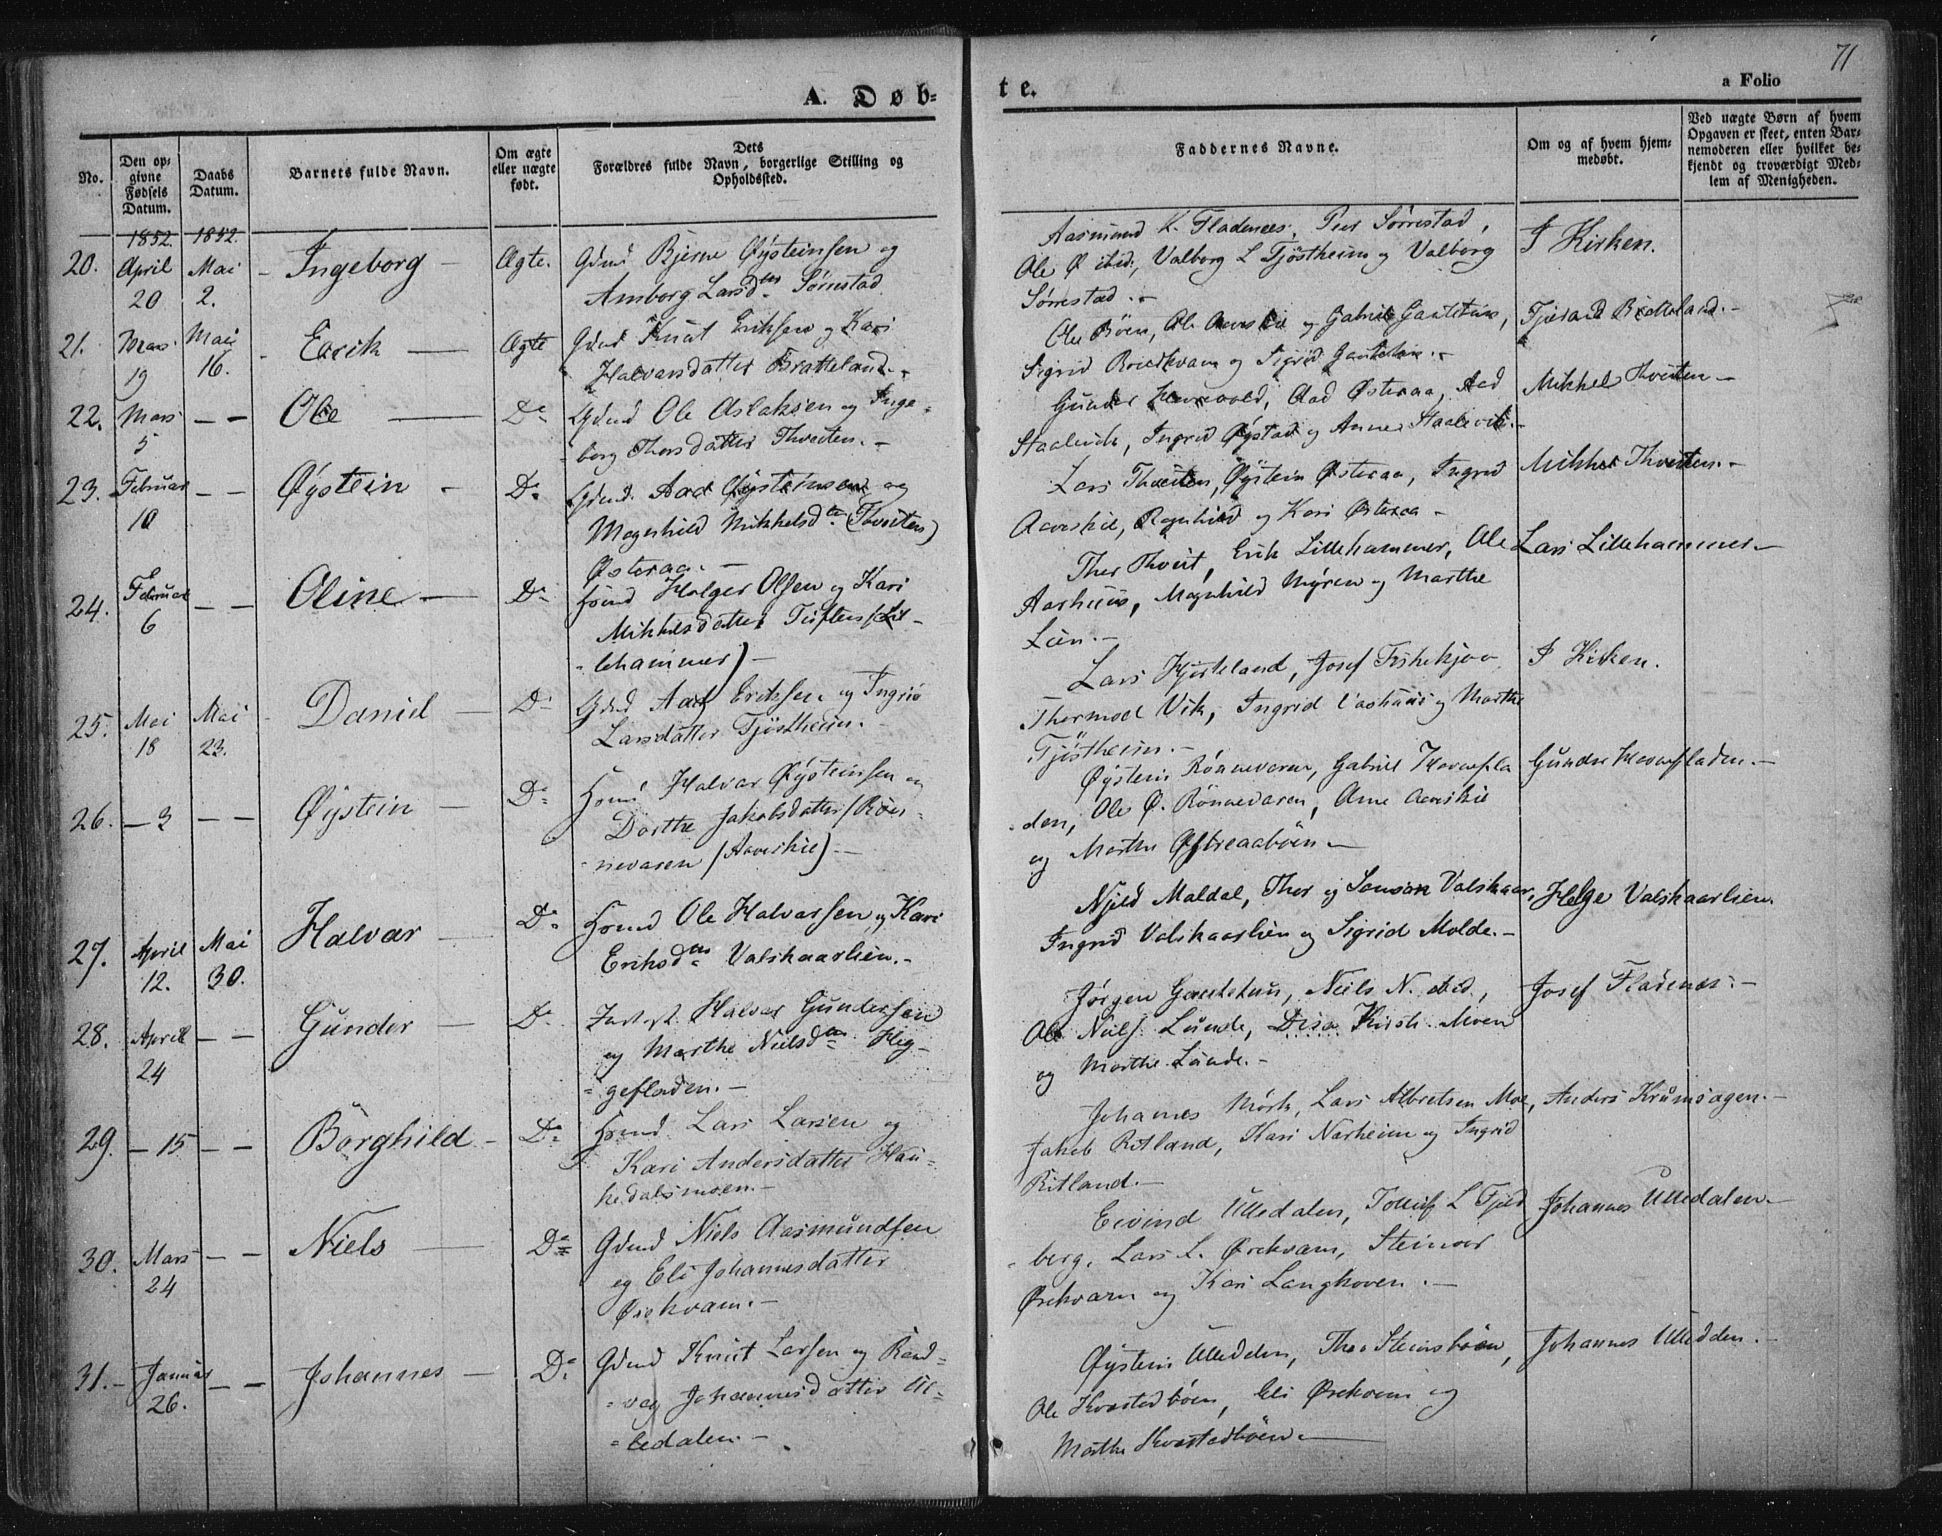 71
A. Døb-
te.
a Folio
No.
Den op-
givne
Fødsels
Datum.
Daabs
Datum.
Barnets fulde Navn.
Om ægte
eller uægte
født.
Dets
Forældres fulde Navn, borgerlige Stilling og
Opholdssted.
Faddernes Navne.
Om og af hvem hjem-
medøbt.
Ved uægte Børn af hvem
Opgaven er skeet, enten Bar-
nemoderen eller hvilket be-
kjendt og troværdigt Med-
lem af Menigheden.
1852. 1852.
20. April 20 Mai 2. - Ingeborg - Ægte. Gdmd Bjerne Øysteinsen og
Amborg Larsdtr Sørrestad
Aasmund K. Fladenæs, Peer Sørrestad,
Ole Ø ibid., Valborg L Tjøstheim og Valborg
Sørrestad.-
I Kirken.
21. Mars 19 Mai 16. - Eerik - Ægte Gdmd Knut Eriksen og Kari
Halvorsdatter Bratteland.-
Ole Böen, Ole og Gabriel Gautetun,
Sigrid Roaldkvam og Sigrid Gautetun.-
Tjerand Bratteland.-
22. Mars 5 - - Ole - Do Gdmd Ole Aslaksen og Inge-
borg Thorsdatter Thveiten.-
Gunder Havrevold, Aad Østeraa, Aad
Staalevik, Ingrid Øystad og Anne Staalevik.-
Mikkel Thveiten -
23. Februar 10 - - Øystein - Do Gdmd. Aad Øysteinsen og
Magnhild Mikkelsdtr (Thveiten)
Østeraa.-
Lars Thveiten, Øystein Østeraa, Ingrid
Aaveskie, Ragnhild og Kari Østeraa -
Mikkel Thveiten.-
24. Februar 6 - - Oline - Do Huusmd Holger Olsen og Kari
Mikkelsdatter Tuften (Lil-
lehammer) -
Thor Thveit, Erik Lillehammer, Ole
Aarhuus, Magnhild Myren og Marthe
Lien.-
Lars Lillehammer -
25. Mai 18 Mai 23. - Daniel - Do Gdmd Aad Eriksen og Ingrid
Larsdatter Tjøstheim.-
Lars Hjorteland, Josef Fiskekjøn
Thormod Vik, Ingrid Aarhuus og Marthe
Tjøstheim.-
I Kirken.
26. - 3 - - Øystein - Do Huusmd Halvar Øysteinsen og
Dorthe Jakobsdatter (Røn-
nevaren (Aaveskie) -
Øystein Rønnevaren, Gabriel Havrefla
den, Ole Ø. Rönnevaren, Anne Aaveskie
og Marthe Østreaabøen -
Gunder Havrefladen.-
27. April 12. Mai 30. Halvar - Do Huusmd Ole Halvorsen og Kari
Eriksdtr Valskaarlien.-
Njeld Maldal, Thor og Samson Valskaar,
Ingrid Valskaarlien og Sigrid Molde.-
Helge Valskaarlien.
28. April 24 - - Gunder - Do Halvor Gundersen
og Marthe Nielsdtr Heg-
gefladen.-
Jörgen Gautetun, Niels N. ibid.,
Ole Niels. Lunde, Disa Kirst. Moen
og Marthe Lunde.-
Josef Fladenæs.-
29. - 15 - - Borghild - Do Huusmd Lars Larsen og
Kari Andersdatter Hau-
kedalsmoen.-
Johannes Mörk, Lars Albretsen Moe,
Jakob Ritland, Kari Narheim og Ingrid
Ritland.-
Anders Krumsagen.-
30. Mars 24 - - Niels - Do Gdmd Niels Aasmundsen
og Eli Johannesdatter
Ørekvam.-
Eivind Ulledalen, Tollef L Fjeld
berg, Lars L. Ørekvam, Steinvor
Ørekvam og Kari Langhoven.-
Johannes Ulledalen.-
31.- Januar 26. - - Johannes - Do Gdmd Knut Larsen og Rand-
vey Johannesdatter Ul-
ledalen.-
Øystein Ulledalen, Thor Steinsbøen,
Ole Kvæstadbøen, Eli Ørekvam og
Marthe Kvæstadbøen.-
Johannes Ulledden.-